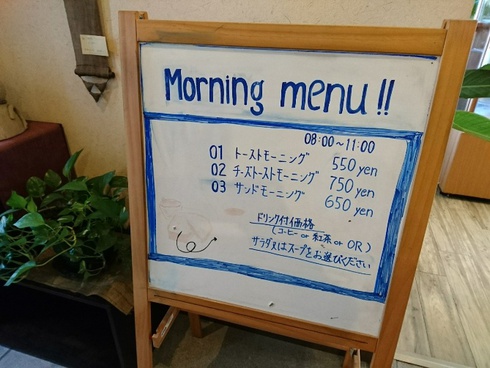 Morning menu!!
08:00~11:00
01 トーストモーニング 550yen
02 チーズトーストモーニング 750yen
03 サンドモーニング 650yen
ドリンク付価格
(コーヒー or 紅茶 or OR)
サラダ又はスープをお選びください